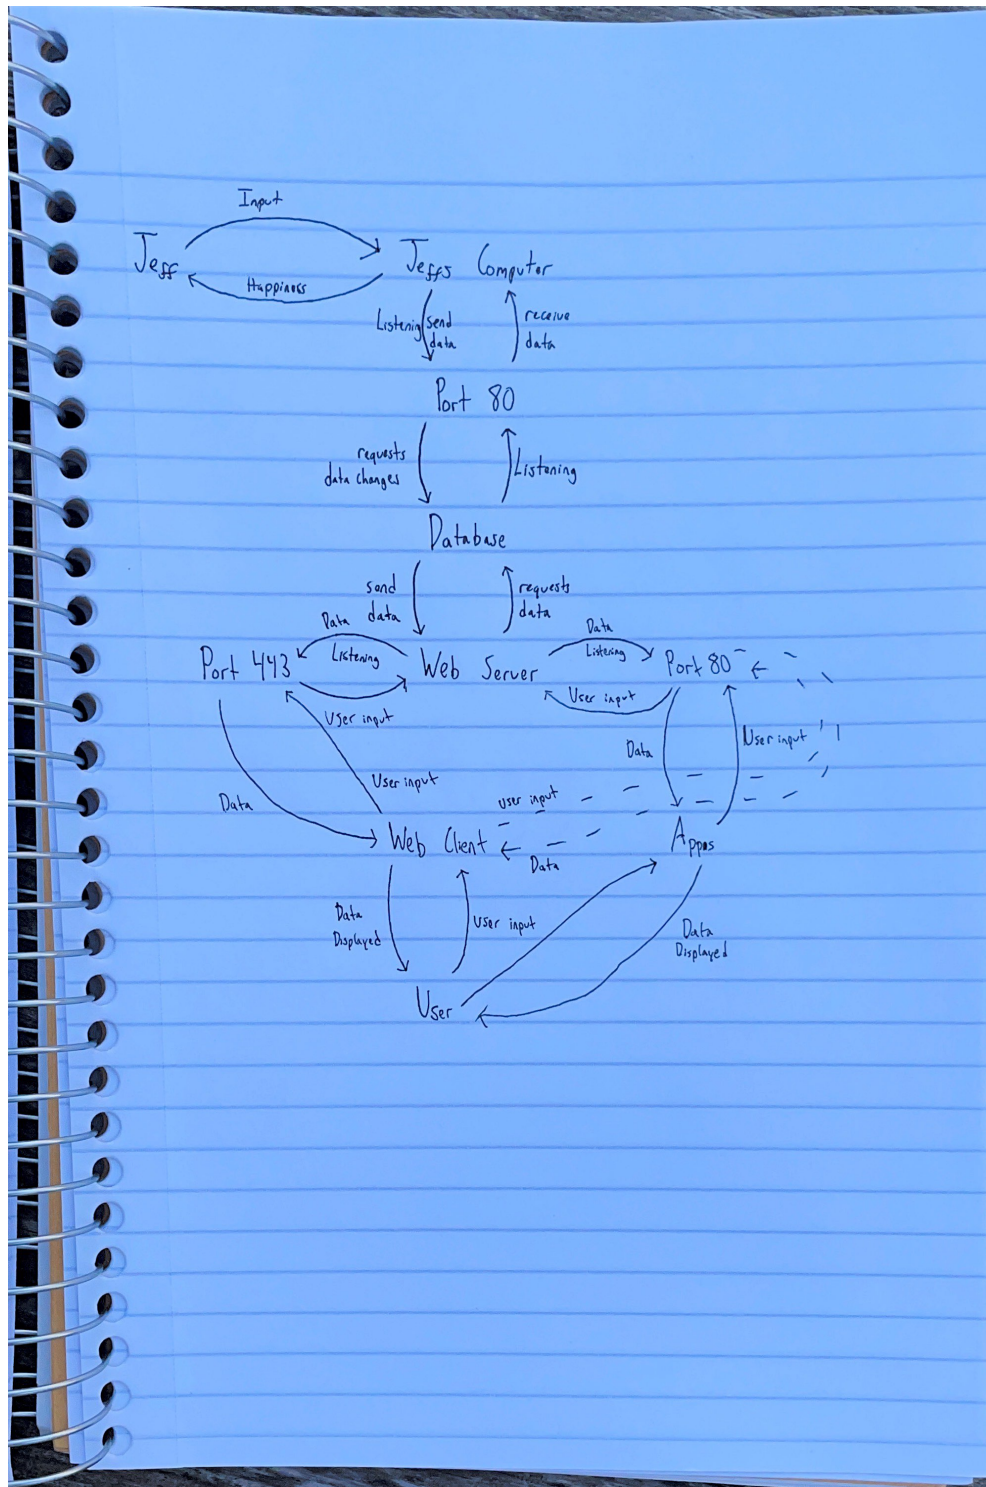 Input
Jeff
Jeffs Computer
Happiness
Listening
send
data
receive
data
Port 80
requests
data changes
Listening
Database
send
data
requests
data
Data
Listening
Port 443
Web Server
Data
Listening
Port 80
User input
User input
User input
Data
User input
Data
User input
Web Client
Data
Apps
Data
Displayed
User input
Data
Displayed
User